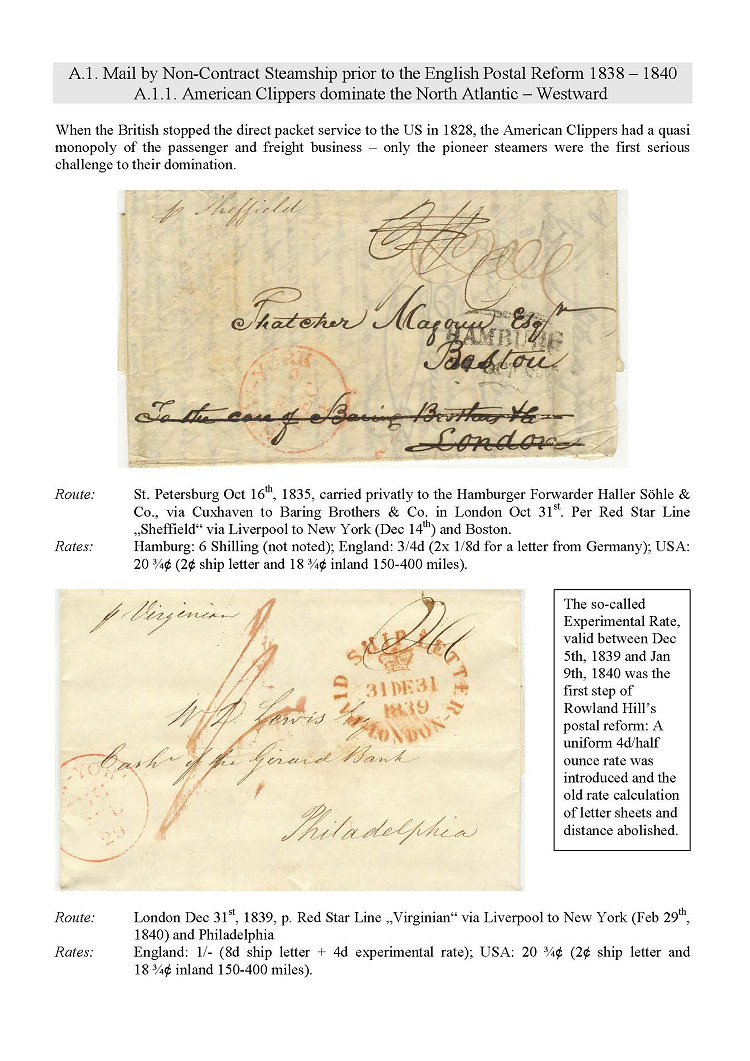 A.1. Mail by Non-Contract Steamship prior to the English Postal Reform 1838 – 1840
A.1.1. American Clippers dominate the North Atlantic – Westward
When the British stopped the direct packet service to the US in 1828, the American Clippers had a quasi
monopoly of the passenger and freight business – only the pioneer steamers were the first serious
challenge to their domination.
p Sheffield
Thatcher Magoun Esqr
HAMBURG
Boston
YORK
To the care of Baring Brothers & Co
London
Route: St. Petersburg Oct 16th, 1835, carried privatly to the Hamburger Forwarder Haller Söhle &
Co., via Cuxhaven to Baring Brothers & Co. in London Oct 31st. Per Red Star Line
„Sheffield“ via Liverpool to New York (Dec 14th) and Boston.
Rates: Hamburg: 6 Shilling (not noted); England: 3/4d (2x 1/8d for a letter from Germany); USA:
20 ¾¢ (2¢ ship letter and 18 ¾¢ inland 150-400 miles).
p Virginian
PAID SHIP LETTER
31DE31
1839
LONDON
W. D. Lewis Esq
Cashr of the Girard Bank
Philadelphia
The so-called
Experimental Rate,
valid between Dec
5th, 1839 and Jan
9th, 1840 was the
first step of
Rowland Hill’s
postal reform: A
uniform 4d/half
ounce rate was
introduced and the
old rate calculation
of letter sheets and
distance abolished.
Route: London Dec 31st, 1839, p. Red Star Line „Virginian“ via Liverpool to New York (Feb 29th,
1840) and Philadelphia
Rates: England: 1/- (8d ship letter + 4d experimental rate); USA: 20 ¾¢ (2¢ ship letter and
18 ¾¢ inland 150-400 miles).